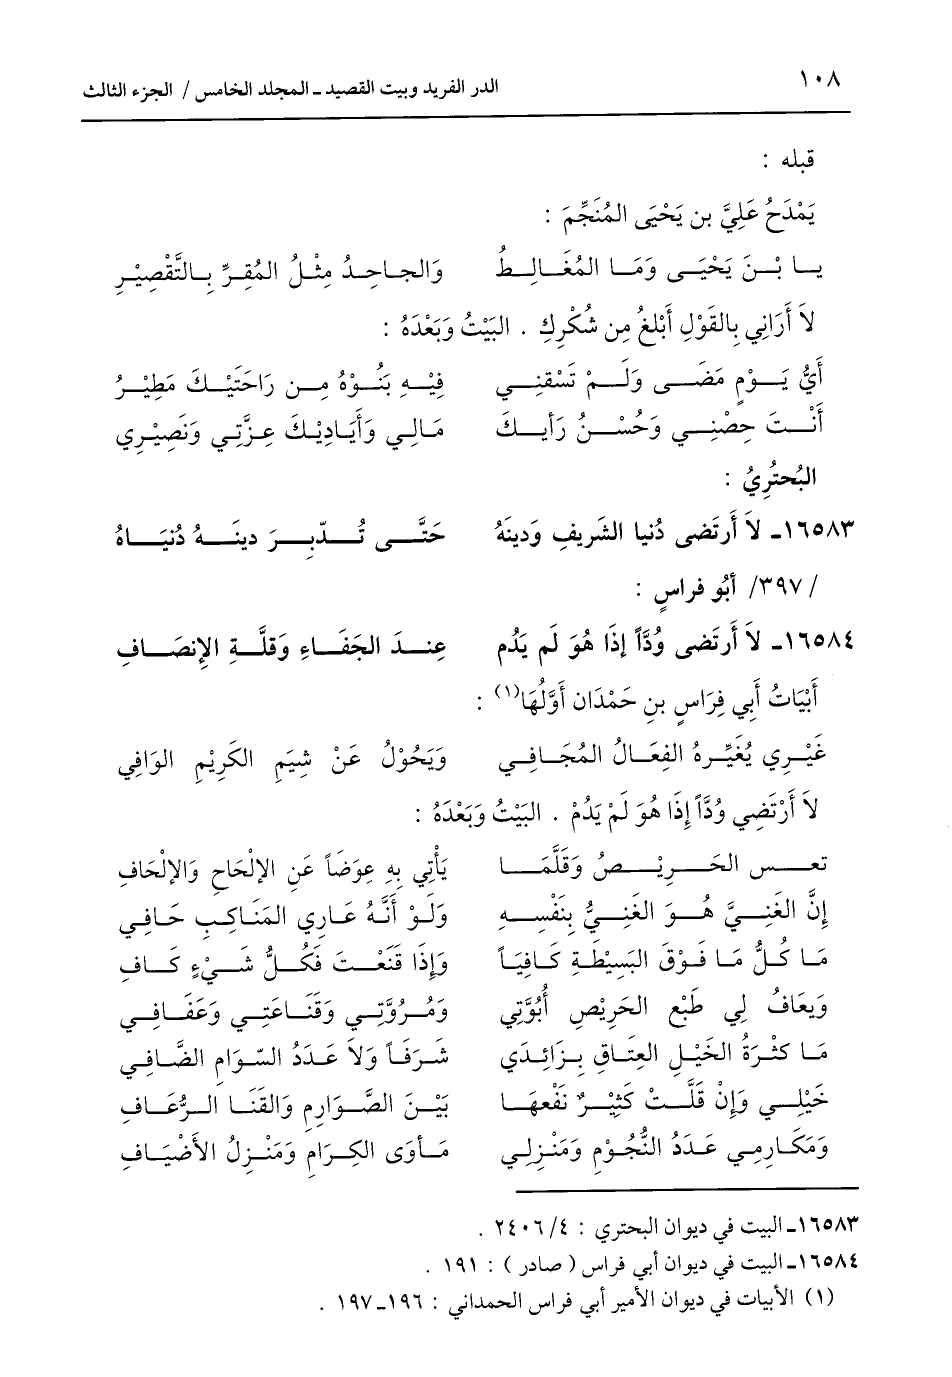 ١٠٨ الدر الفريد وبيت القصيد ـ المجلد الخامس / الجزء الثالث
قبله :
يَمْدَحُ عَلِيَّ بن يَحْيَى المُنَجِّمَ :
يا بْنَ يَحْيَى وَمَا المُغَالِطُ وَالجاحِدُ مِثْلُ المُقِرِّ بِالتَّقْصِيْرِ
لاَ أَرَانِي بِالقَوْلِ أَبْلغُ مِن شُكْرِكِ . البَيْتُ وَبَعْدَهُ :
أَيُّ يَوْمٍ مَضَى وَلَمْ تَسْقنِي فِيْهِ بَنُوْهُ مِن رَاحَتَيْكَ مَطِيْرُ
أَنْتَ حِصْنِي وَحُسْنُ رَأيكَ مَالِي وَأَيَادِيْكَ عِزَّتِي وَنَصِيْرِي
البُحتُرِيُ :
١٦٥٨٣ـ لاَ أَرتَضى دُنيا الشَريفِ وَدينَهُ حَتَّى تُدّبِرَ دينهُ دُنيَاهُ
/٣٩٧/ أَبُو فراسٍ :
١٦٥٨٤ـ لاَ أَرتَضى وُدَّاً إِذَا هُوَ لَم يَدُم عِندَ الجَفَاءِ وَقلَّةِ الإِنصَافِ
أَبْيَاتُ أَبِي فِرَاسٍ بنِ حَمْدَان أَوَّلُهَا(١) :
غَيْرِي يُغَيِّرهُ الفِعَالُ المُجَافِي وَيَحُوْلُ عَنْ شِيَمِ الكَرِيْمِ الوَافِي
لاَ أَرْتَضِي وُدَّاً إِذَا هُوَ لَمْ يَدُمْ . البَيْتُ وَبَعْدَهُ :
تعس الحَرِيْصُ وَقَلَّمَا يَأْتِي بِهِ عِوَضَاً عَنِ الإلْحَاحِ وَالإلْحَافِ
إِنَّ الغَنِيَّ هُوَ الغَنِيُّ بِنَفْسِهِ وَلَوْ أَنَّهُ عَارِي المَنَاكِبِ حَافِي
مَا كُلُّ مَا فَوْقَ البَسِيْطَةِ كَافِيَاً وَإِذَا قَنَعْتَ فَكُلُّ شَيْءٍ كَافِ
وَيعَافُ لِي طَبْعَ الحَرِيْصِ أُبُوَّتِي وَمُرُوَّتِي وَقَنَاعَتِي وَعَفَافِي
مَا كثْرَةُ الخَيْلِ العِتَاقِ بِزَائِدَي شَرَفَاً وَلاَ عَدَدُ السّوَامِ الضَّافِي
خَيْلِي وَإِنْ قَلَّتْ كَثِيْرٌ نَفْعهَا بَيْنَ الصَّوَارِمِ وَالقَنَا الرُّعَافِ
وَمَكَارِمِي عَدَدُ النُّجُوْمِ وَمَنْزِلِي مَأوَى الكِرَامِ وَمَنْزِلُ الأَضْيَافِ
١٦٥٨٣ـ البيت في ديوان البحتري : ٤/ ٢٤٠٦ .
١٦٥٨٤ـ البيت في ديوان أبي فراس ( صادر ) : ١٩١ .
(١) الأبيات في ديوان الأمير أبي فراس الحمداني : ١٩٦ـ١٩٧ .